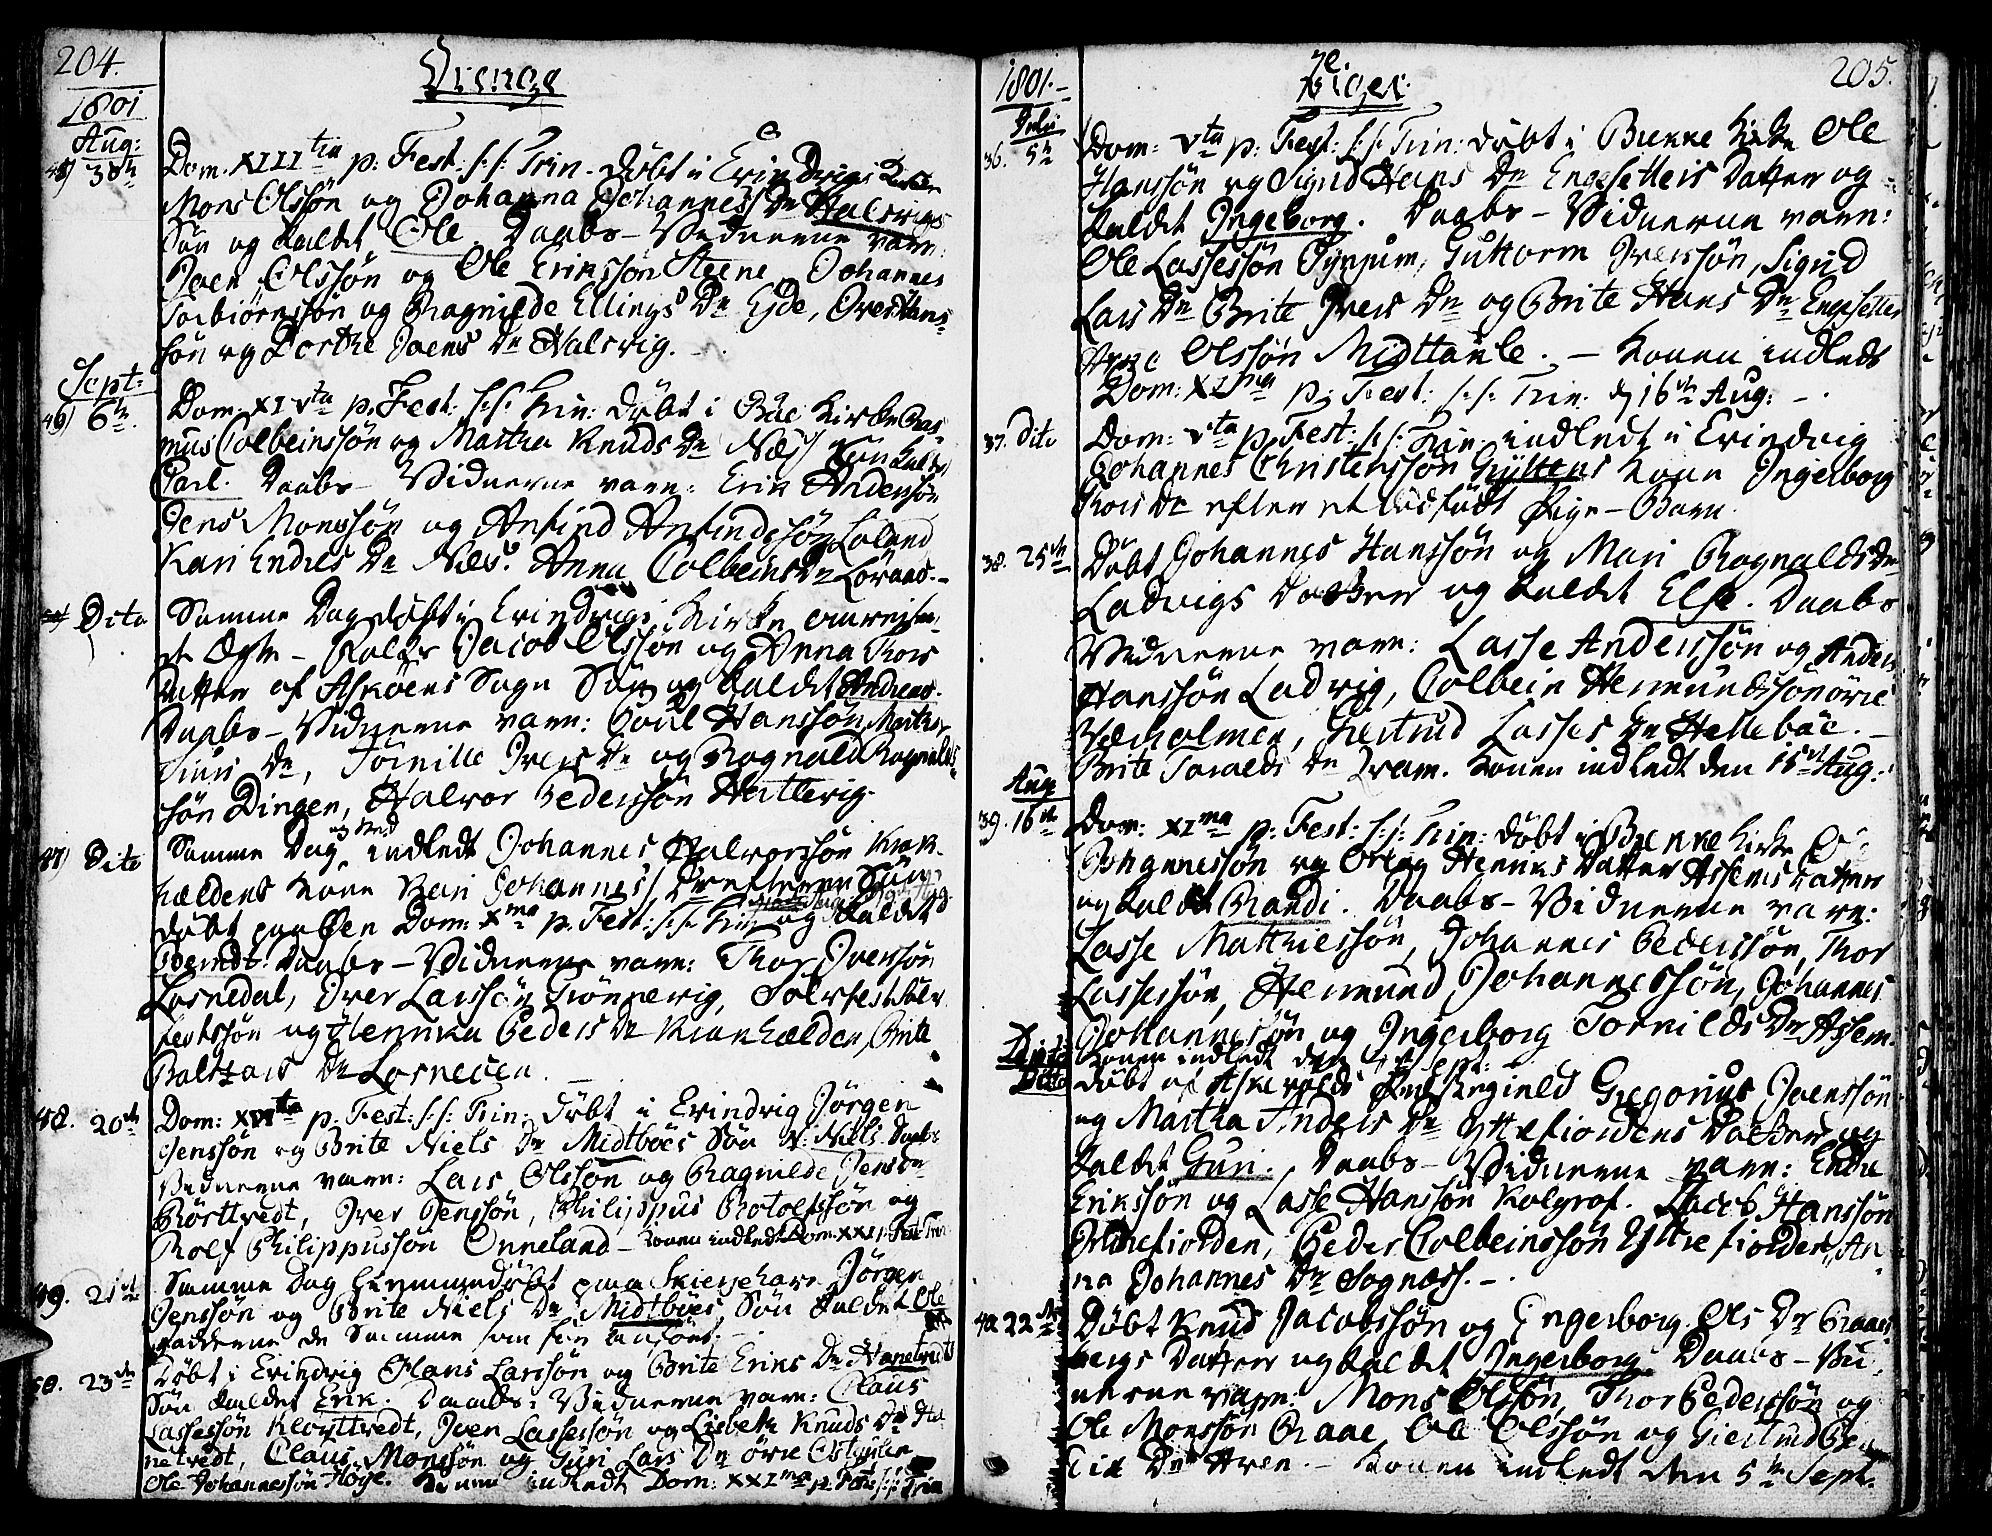 204.
Drenge
1801
Aug:
45) 30te Dom. XIIItia p. Fest: s:s: Trin. døbt i Evindvigs Kirke
Mons Olssön og Johanna Johannes Dr Halsvigs
Søn og kaldet Ole. Daabs-Vidnerne vare:
Joen Olssön og Ole Erikssön Steene, Johannes
Torbiörnssön og Ragnilde Ellings Dr Eide, Iver Hans-
sön og Dorthe Joens Dr Halsvig.
Sept:
46) 6te Dom. XIVta p. Fest: s:s: Trin: døbt i Bøe Kirke Ras-
mus Colbeinssön og Martha Knuds Dr Næs Søn kaldet
Carl. Daabs-Vidnerne vare: Erik Anderssön
Jens Monssön og Anfind Anfindssön Loland
Kari Endres Dr Næs. Anna Colbeins Dr Löraas.
Dito Samme Dag døbt i Evindvigs Kirke omreisen-
de Jacob Olssön og Anna Thors
Datter af Askøens Sogn Søn og kaldet Andreas.
Daabs-Vidnerne vare: Poul Hanssön
Dr, Törnille Ivers Dr og Ragnald Ragnalds-
sön Dingen, Halvor Pederssön Hertlevig.
47) Dito Samme Dag indledt Johannes Halvorssön Krak-
hældens Kone Kari Johannes Dr efter en Søn
døbt Dom: Xma p. Fest: s:s: Trin og kaldet
Berndt. Daabs-Vidnerne vare: Thor Iverssön
Losnedal, Iver Larssön Trönnevig,
og Hennika Peders Dr Krakhælden, Brite
Baltzars Dr Losneöen.
48. 20de Dom: XVIta p. Fest: s:s: Trin: døbt i Evindvig Jörgen
Jenssön og Brite Niels Dr Midtböes Søn N: Niels. Daabs
Vidnerne vare: Lars Olssön og Ragnilde Jens Dr
Rörttvedt, Iver Jenssön, Philippus Botolfssön og
Rolf Philippussön Onneland - Konen indledt Dom. XXI p. Fest Trin
49. 21de Samme Dag hjemmedøbt paa Skierjehavn Jörgen
Jenssön og Brite Niels Dr Midtböes Søn kaldet Ole
Fadderne de Samme som
50. 23de Døbt i Evindvig Hans Larssön og Brite Eriks Dr Nanetvedts
Søn kaldet Erik. Daabs-Vidnerne vare: Claus
Lassessön Klöyttvedt, Joen Lassessön og Lisbeth Knuds Dr Ha-
netvedt, Claus Monssön og Guri Lars Dr övre Ostgulen
Ole Johannessön Höye. Konen indledt Dom: XXIma p. Fest s:s: Trin
205.
Piger.
1801.
Julii
36. 5te Dom: Vta p: Fest: s:s: Trin: døbt i Brekke Kirke Ole
Hanssön og Sigrid Hans Dr Engesetters Datter og
kaldet Ingeborg. Daabs-Vidnerne vare:
Ole Lassessön Tynjum, Guttorm Iverssön, Sigrid
Lars Dr Brite Ivers Dr og Brite Hans Dr Engesetter
Arne Olssön Midttanle. - Konen indledt
Dom: XIma p: Fest: s:s: Trin. d 16de Aug: -.
37. Dito Dom: Vta p. Fest: s:s: Trin: indledt i Evindvig
Johannes Christenssön Gryttens Kone Ingeborg
Thors Dr efter et dødfødt Pige-Barn.
38. 25de Døbt Johannes Hanssön og Mari Ragnalds Dr
Ladvigs Datter og kaldet Else. Daabs
Vidnerne vare: Lasse Anderssön og Anders
Hanssön Ladvig, Colbein Hermundssön övre
Værholmen, Giertrud Lasses Dr Hellebøe. -
Brite Taralds Dr Kram. Konen indledt den 15de Aug:
Aug
39. 16de Dom: XIma p: Fest: s:s: Trin: døbt i Brekke Kirke
Johannessön og Oleg Henriks Datter Asfems Datter
og kaldet Randi. Daabs-Vidnerne vare:
Lasse Mathiessön, Johannes Pederssön, Thor
Lassessön, Hermund Johannessön, Johannes
Johannessön og Ingeborg Tornilds Dr Asfem.
Konen indledt den Sept:
Dito døbt af Askevolds Præstegield Gregorius Joenssön
og Martha Anders Dr Yttrefiordens Datter og
kaldet Guri. Daabs-Vidnerne vare: Endre
Erikssön og Lasse Hanssön Kolgrof. Jacob Hanssön
Indrefiorden, Peder Colbeinssön Yttrefiorden, An-
na Johannes Dr Sognæss. -.
40. 22de Døbt Knud Jacobssön og Ingerborg Ols Dr Raae-
bergs Datter og kaldet Ingerborg. Daabs-Vid-
nerne vare: Mons Olssön, Thor Pederssön og
Ole Monssön Raae, Ole Olssön og Giertrud Ben-
Dr Aven. - Konen indledt den 5te Sept.